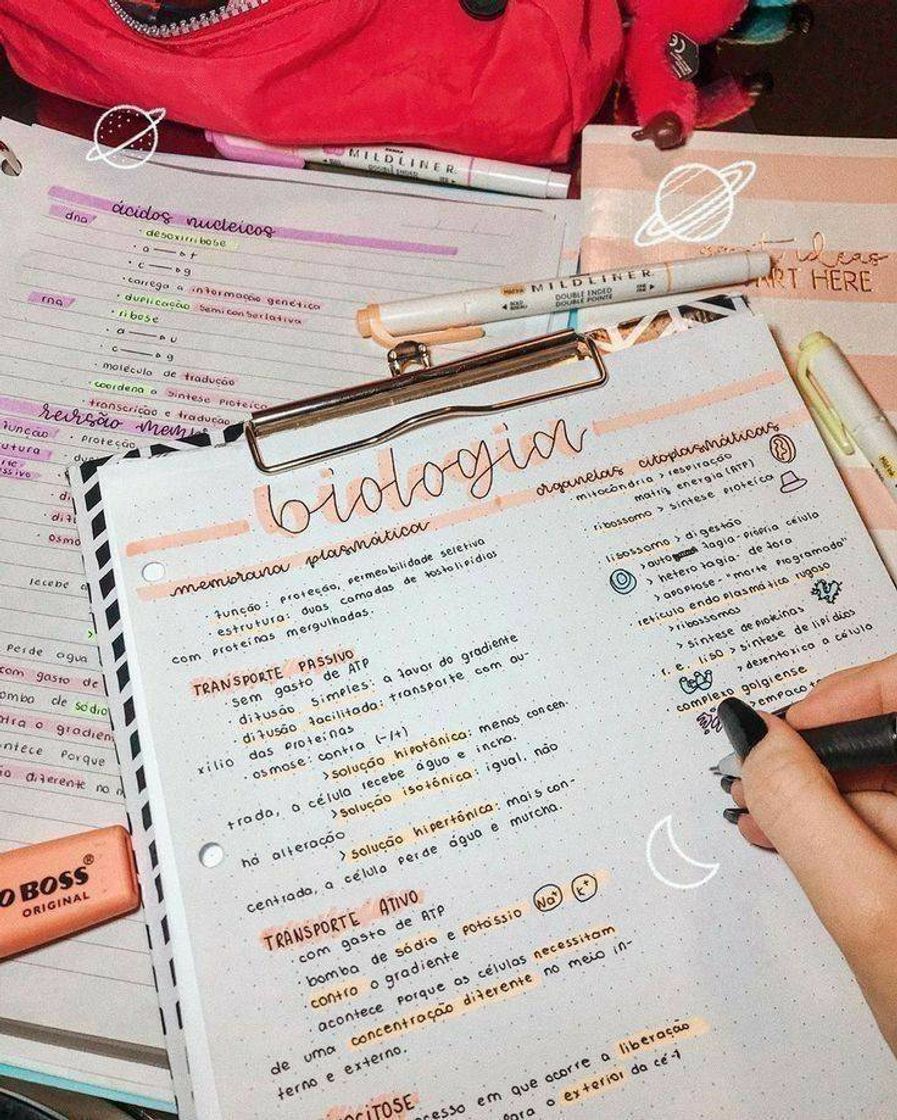 MILDLINER
DOUBLE ENDED
ácidos nucleicos
dna
· desoxirribose
· a → t
· c → g
· carrega a informação genética
· duplicação semiconservativa
rna
· ribose
· a → u
· c → g
· molécula de tradução
· coordena a síntese proteica
· transcrição e tradução
revisão memb
função
· proteção
utura
ssivo
osmo
recebe
perde água
com gasto de
omba de sódio
ntra o gradien
ntece porque
diferente no m
MILDLINER
DOUBLE ENDED
DOUBLE POINTE
ideas
START HERE
biologia
membrana plasmática
função: proteção, permeabilidade seletiva
· estrutura: duas camadas de fosfolipídios
com proteínas mergulhadas.
TRANSPORTE PASSIVO
· sem gasto de ATP
· difusão simples: a favor do gradiente
· difusão facilitada: transporte com au-
xílio das proteínas
· osmose: contra (-/+)
>solução hipotônica: menos concen-
trada, a célula recebe água e incha.
>solução isotônica: igual, não
há alteração
>solução hipertônica: mais con-
centrada, a célula perde água e murcha.
TRANSPORTE ATIVO
· com gasto de ATP
· bomba de sódio e potássio Na+ K+
contra o gradiente
· acontece porque as células necessitam
de uma concentração diferente no meio in-
terno e externo.
OCITOSE
cesso em que ocorre a liberação
para o exterior da cé-l
organelas citoplasmáticas
· mitocôndria > respiração
matriz energia (ATP)
· ribossomo > síntese proteica
lisossomo > digestão
> autofagia- própria célula
> heterofagia- de fora
> apoptose- "morte programada"
retículo endoplasmático rugoso
>ribossomos
> síntese de proteínas
r. e. liso > síntese de lipídios
> desentoxica a célula
complexo golgiense
>empaco
BOSS®
ORIGINAL
CE